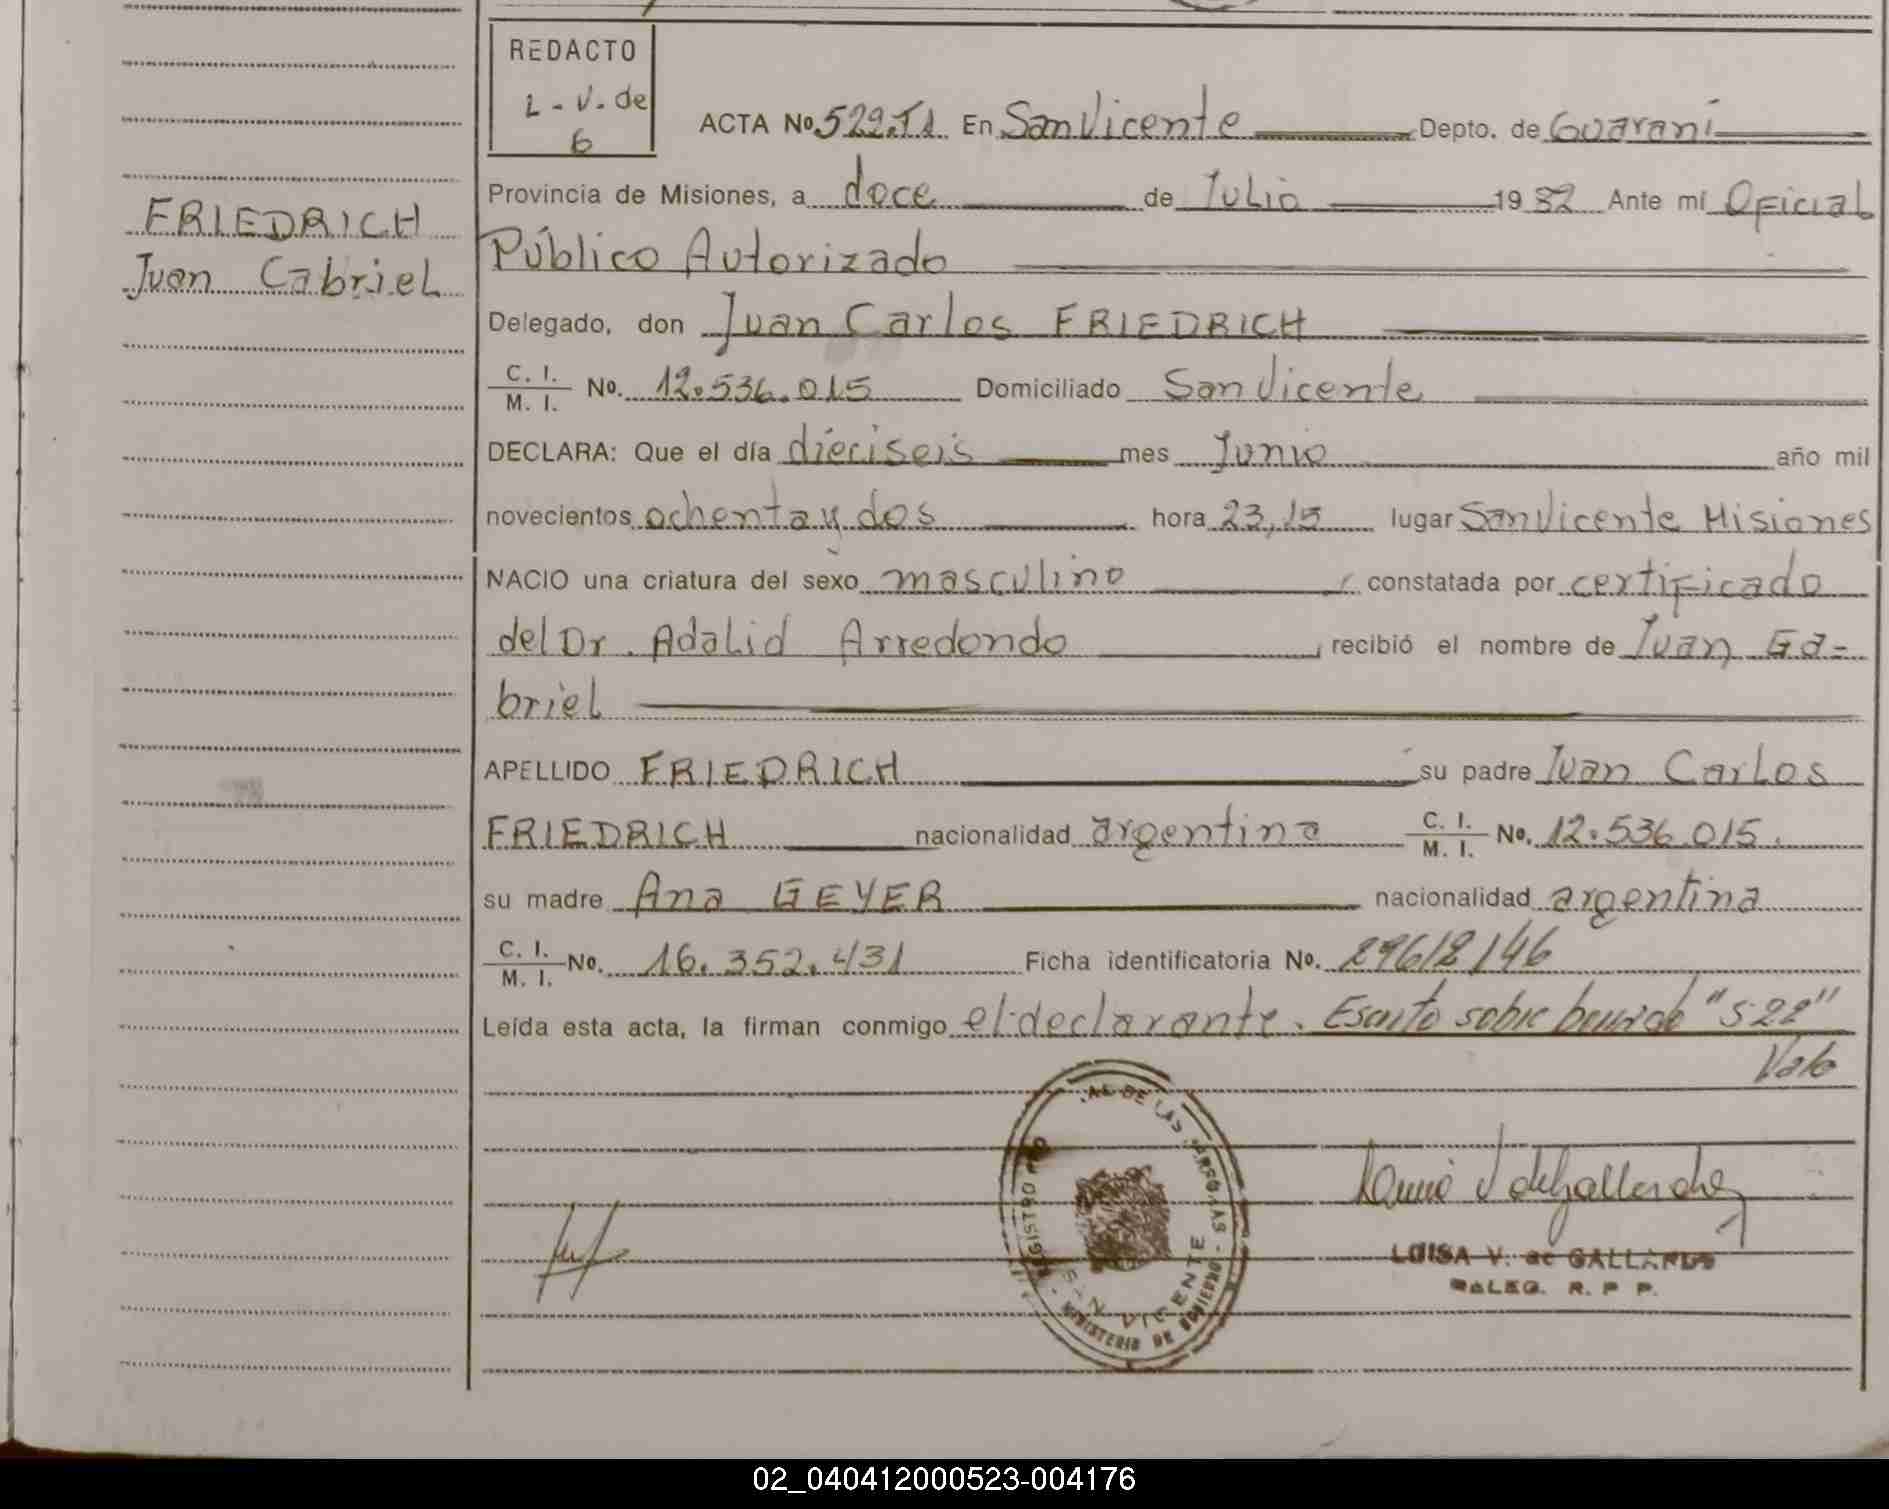 REDACTO
L - V. de
G
ACTA No 522.T1. En San Vicente Depto. de Guaraní
Provincia de Misiones, a doce de Julio 1982 Ante mí Oficial
FRIEDRICH
Juan Gabriel
Público Autorizado
Delegado, don Juan Carlos FRIEDRICH
C. I. / M. I. No. 12.536.015 Domiciliado San Vicente
DECLARA: Que el día dieciseis mes Junio año mil
novecientos ochenta y dos hora 23,15 lugar San Vicente Misiones
NACIO una criatura del sexo masculino constatada por certificado
del Dr. Adalid Arredondo, recibió el nombre de Juan Ga=
briel
APELLIDO FRIEDRICH su padre Juan Carlos
FRIEDRICH nacionalidad argentina C. I. / M. I. No. 12.536.015.
su madre Ana GEYER nacionalidad argentina
C. I. / M. I. No. 16.352.431 Ficha identificatoria No.
Leída esta acta, la firman conmigo el declarante. Escrito sobre borrado "522"
Vale
REGISTRO AL DE LAS
SAN VICENTE
MINISTERIO DE GOBIERNO
LUISA V. de GALLARDO
DELEG. R. P. P.
02_040412000523-004176